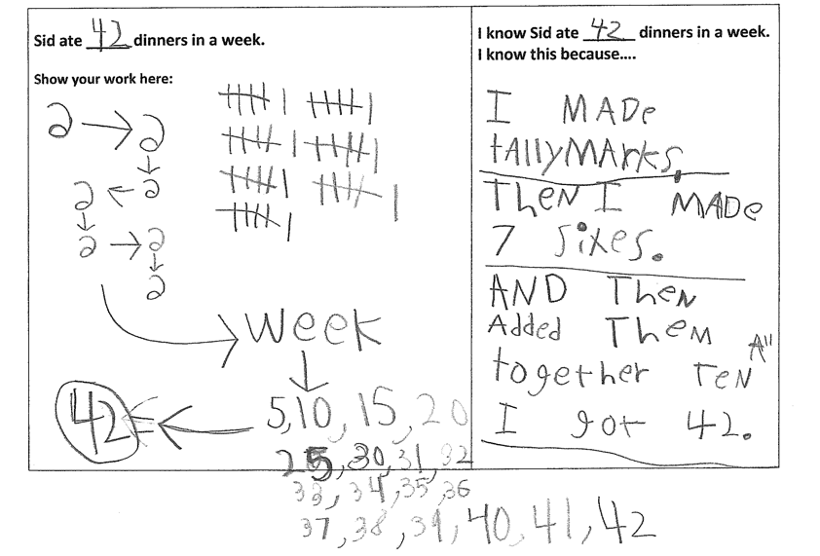 Sid ate 42 dinners in a week.
Show your work here:
2 → 2
2 ← 2
2 → 2
2
week
5,10, 15, 20
25, 30, 31, 32
33, 34, 35, 36
37, 38, 39, 40, 41, 42
42
I know Sid ate 42 dinners in a week.
I know this because....
I MADe
tAllyMArks,
TheN I MADe
7 Sixes.
AND TheN
Added TheM All
together TeN
I got 42.